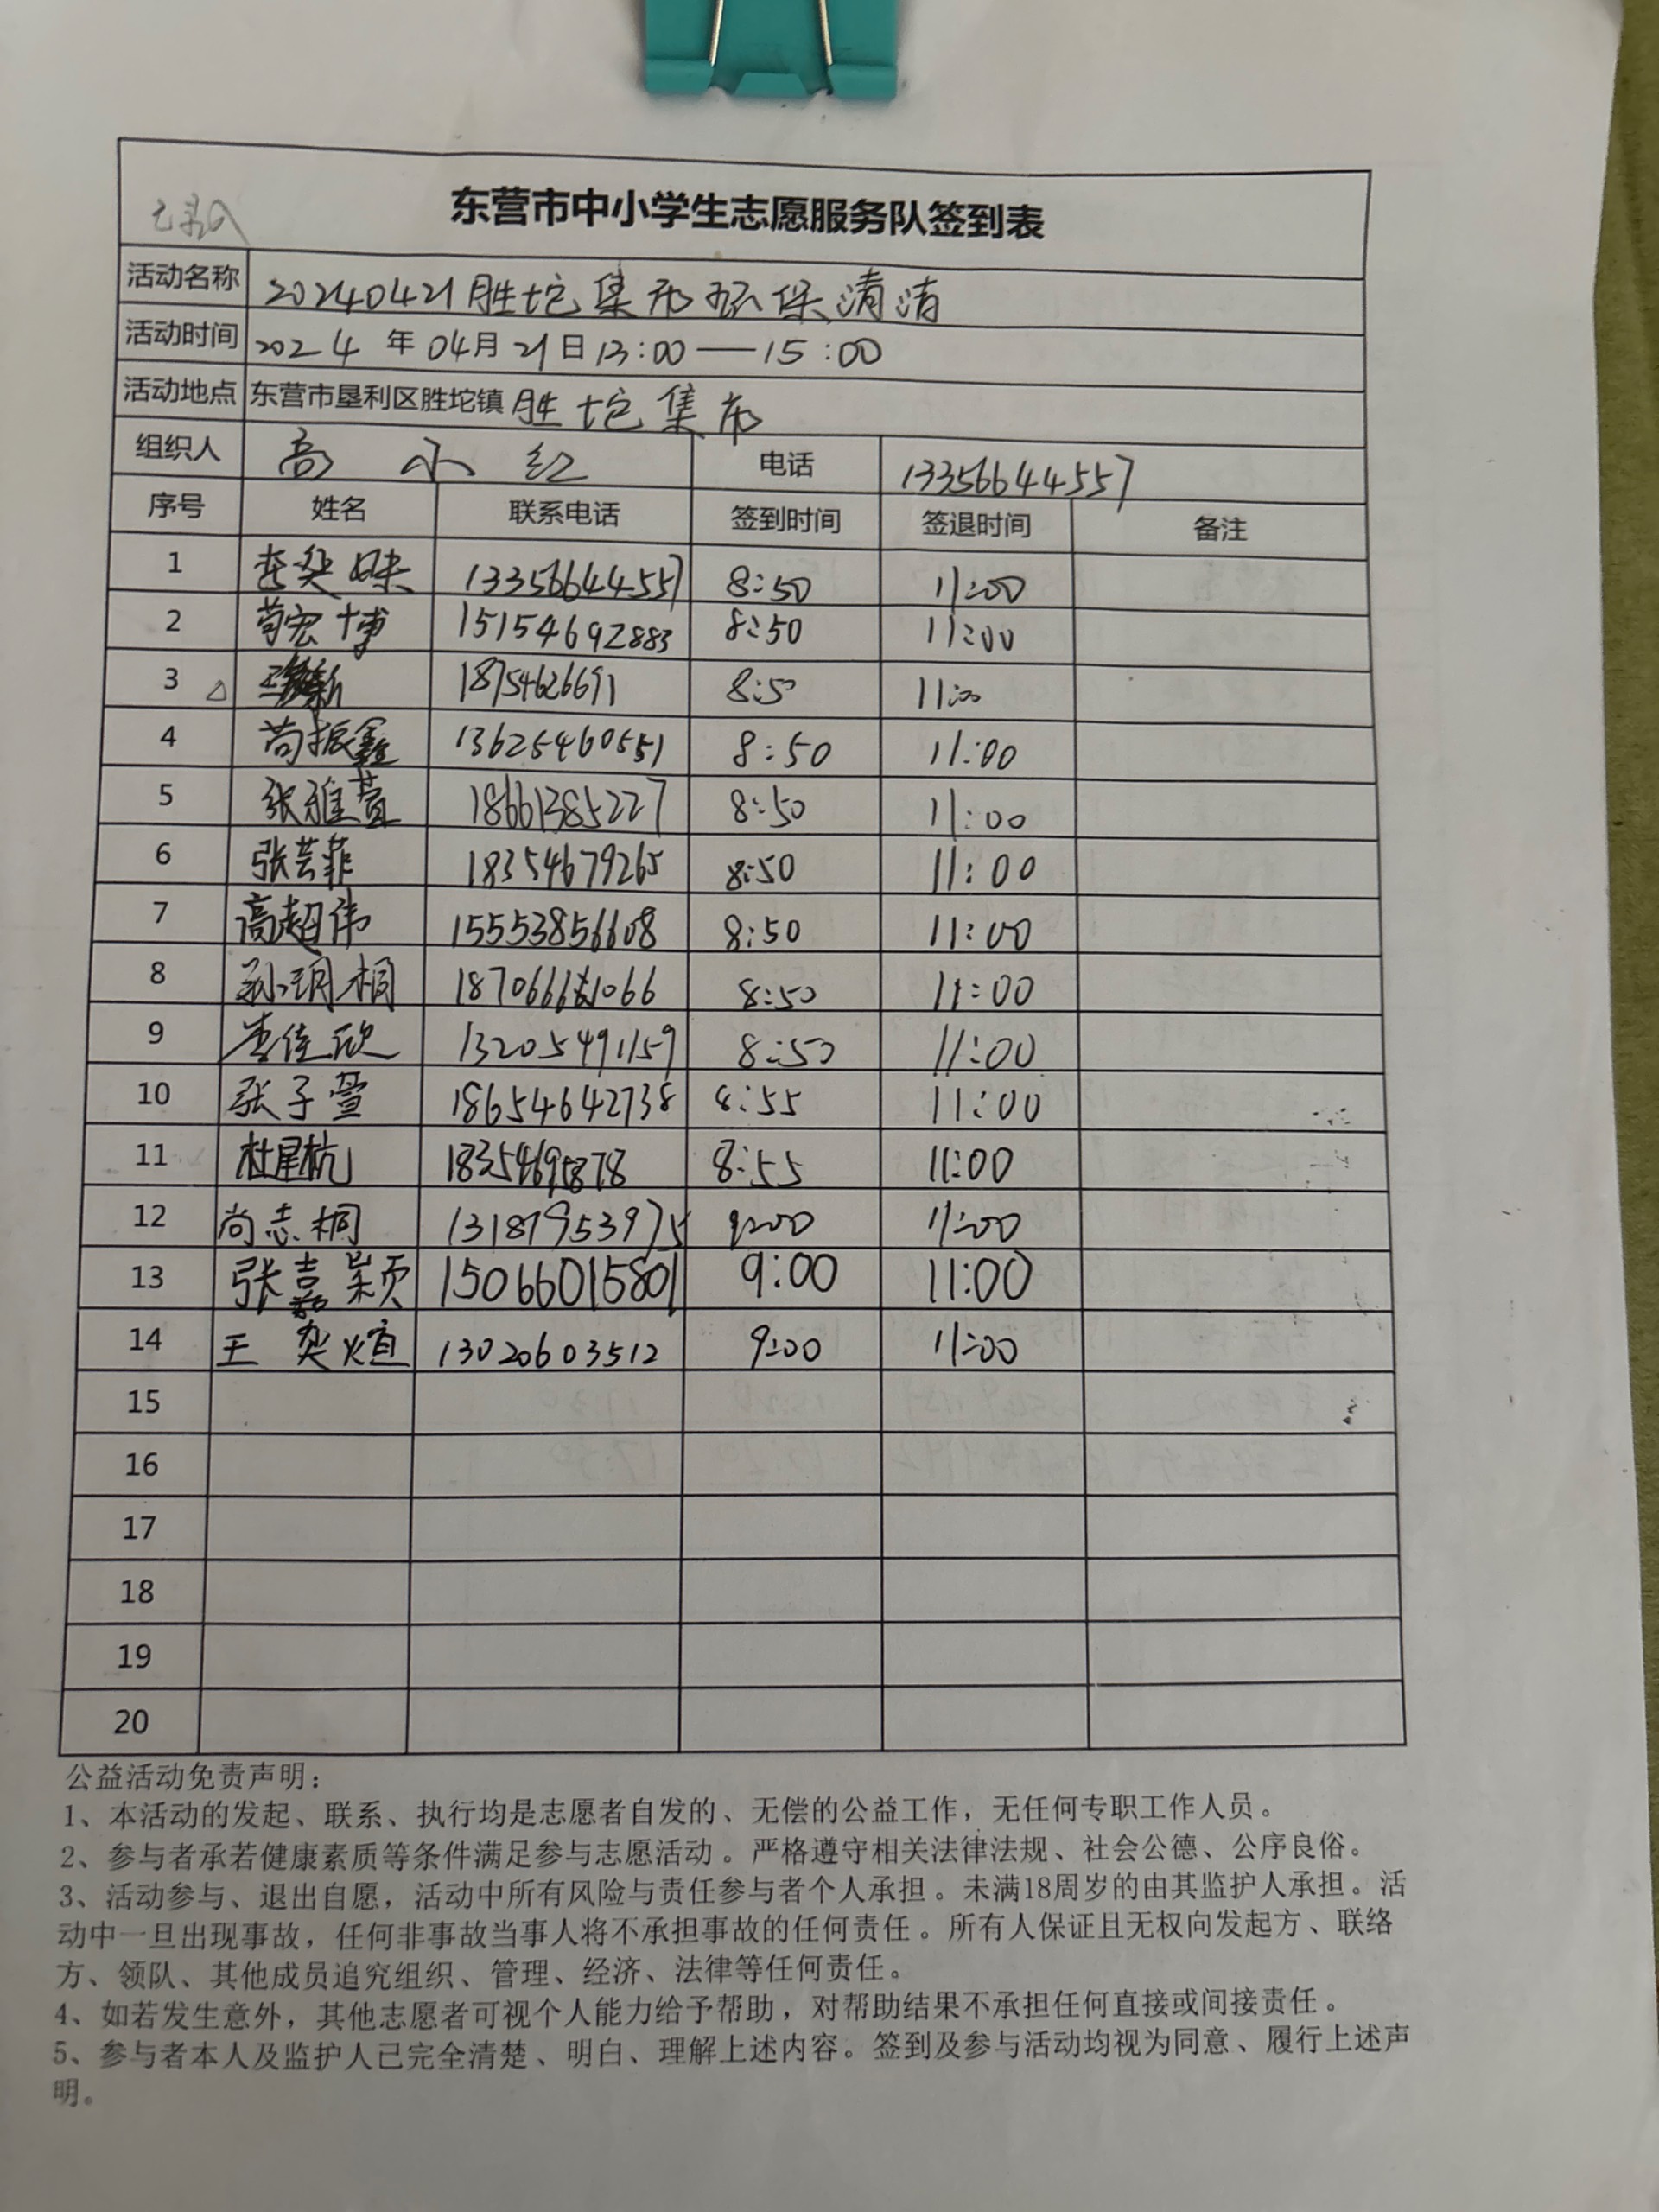 已录入
东营市中小学生志愿服务队签到表
活动名称 20240421胜坨集市环保清洁
活动时间 2024年04月21日13:00—15:00
活动地点 东营市垦利区胜坨镇胜坨集市
组织人 高小红 电话 13356644557
序号 姓名 联系电话 签到时间 签退时间 备注
1 13356644557 8:50 11:00
2 苟宏博 15154692883 8:50 11:00
3 18754626691 8:50 11:00
4 苟振鑫 13625460551 8:50 11:00
5 张雅萱 18661385227 8:50 11:00
6 张芸菲 18354679265 8:50 11:00
7 高超伟 15553856608 8:50 11:00
8 孙玥桐 8:50 11:00
9 李佳欣 13205491159 8:50 11:00
10 张子萱 18654642738 8:55 11:00
11 18354695878 8:55 11:00
12 尚志桐 13181953975 9:00 11:00
13 张嘉颖 15066015801 9:00 11:00
14 王奕煊 13020603512 9:00 11:00
15
16
17
18
19
20
公益活动免责声明：
1、本活动的发起、联系、执行均是志愿者自发的、无偿的公益工作，无任何专职工作人员。
2、参与者承若健康素质等条件满足参与志愿活动。严格遵守相关法律法规、社会公德、公序良俗。
3、活动参与、退出自愿，活动中所有风险与责任参与者个人承担。未满18周岁的由其监护人承担。活
动中一旦出现事故，任何非事故当事人将不承担事故的任何责任。所有人保证且无权向发起方、联络
方、领队、其他成员追究组织、管理、经济、法律等任何责任。
4、如若发生意外，其他志愿者可视个人能力给予帮助，对帮助结果不承担任何直接或间接责任。
5、参与者本人及监护人已完全清楚、明白、理解上述内容。签到及参与活动均视为同意、履行上述声
明。